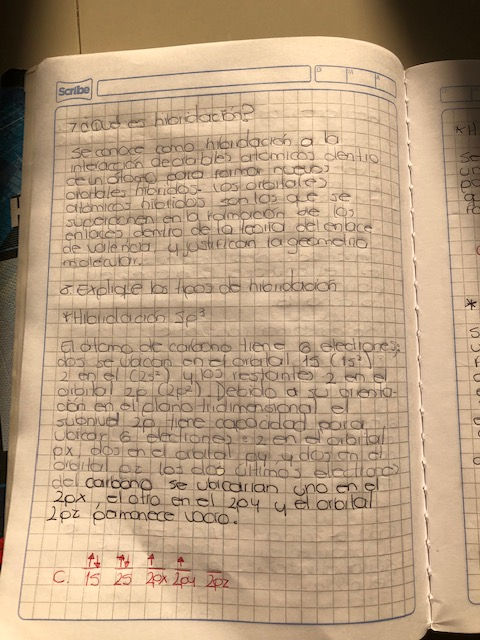 Scribe
D M A
7.¿Qué es hibridación?
Se conoce como hibridación a la
interacción de orbitales atómicos dentro
de un átomo para formar nuevos
orbitales híbridos. Los orbitales
atómicos híbridos son los que se
superponen en la formación de los
enlaces dentro de la teoría del enlace
de valencia y justifican la geometría
molecular.
8. Explique los tipos de hibridación
*Hibridación Sp³
El átomo de carbono tiene 6 electrones:
dos se ubican en el orbital 1S (1S²)
2 en el (2S²) y los restantes 2 en el
orbital 2p (2p²). Debido a su orienta-
ción en el plano tridimensional el
subnivel 2p tiene capacidad para
ubicar 6 electrones: 2 en el orbital
px, dos en el orbital py y dos en el
orbital pz. los dos últimos electrones
del carbono se ubicarían uno en el
2px, el otro en el 2py y el orbital
2pz permanece vacío.
↑↓ ↑↓ ↑ ↑
C: 1S 2S 2px 2py 2pz